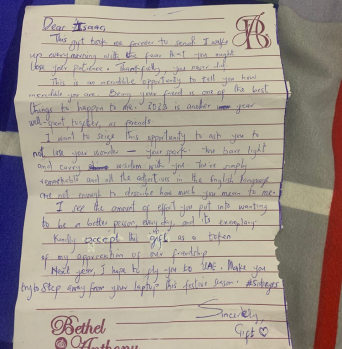 Dear Isaac,
This gift took me forever to send. I wake
up every morning with the fear that you might
lose your patience. Thankfully, you never did.
This is an incredible opportunity to tell you how
incredible you are. Being your friend is one of the best
things to happen to me. is another year
well-spent together as friends
I want to seize this opportunity to ask you to
not lose your wonder — your You have light
and carry wisdom with you. You're simply
remarkable and all the adjectives in the English language
are not enough to describe how much you mean to me.
I see the amount of effort you put into wanting
to be a better person, every day, and it's exemplary
Kindly accept this gift as a token
of my appreciation of our friendship
Next year, I hope to fly you to UAE. Make you
try to step away from your laptop this festive season.
Sincerely,
Gift
Bethel
Anthony